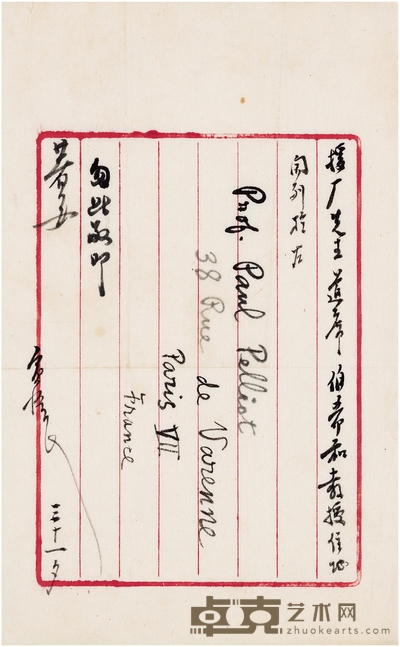 援厂先生道席 伯希和教授住址
开列于左
Prof. Paul Pelliot
38 Rue de Varenne
Paris VII
France
匆此敬叩
著安
寅恪
三十一夕
卓克艺术网
zhuokearts.com